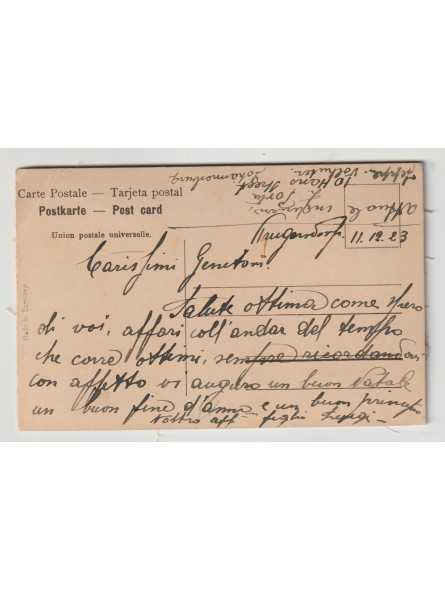 Carte Postale — Tarjeta postal
Postkarte — Post card
Union postale universelle.
Krugersdorp. 11.12.23
Carissimi Genitori.
Salute ottima come spero
di voi, affari coll'andar del tempo
che corre ottimi, sempre ricordandovi
con affetto vi auguro un buon Natale
un buon fine d'anno e un buon principio
Vostro aff figlio
Johannesburg